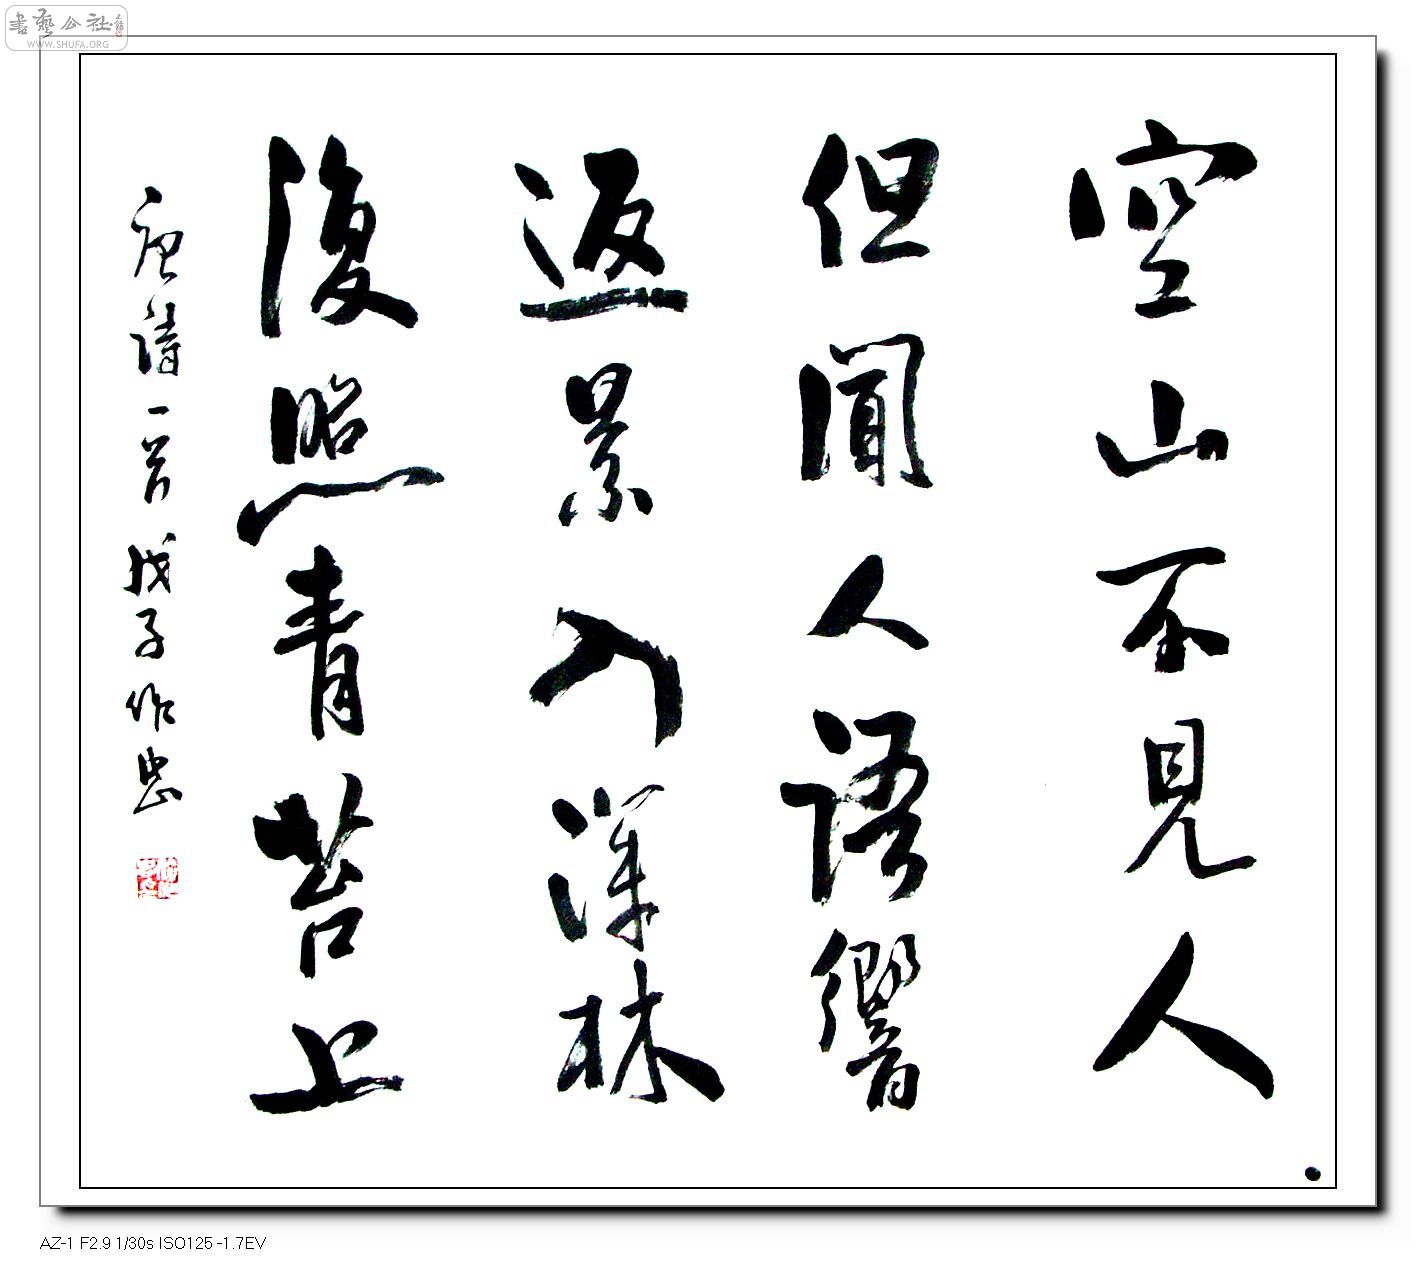 書藝公社
WWW.SHUFA.ORG
空山不見人
但聞人語響
返景入深林
復照青苔上
唐詩一首 戊子 作忠
AZ-1 F2.9 1/30s ISO125 -1.7EV